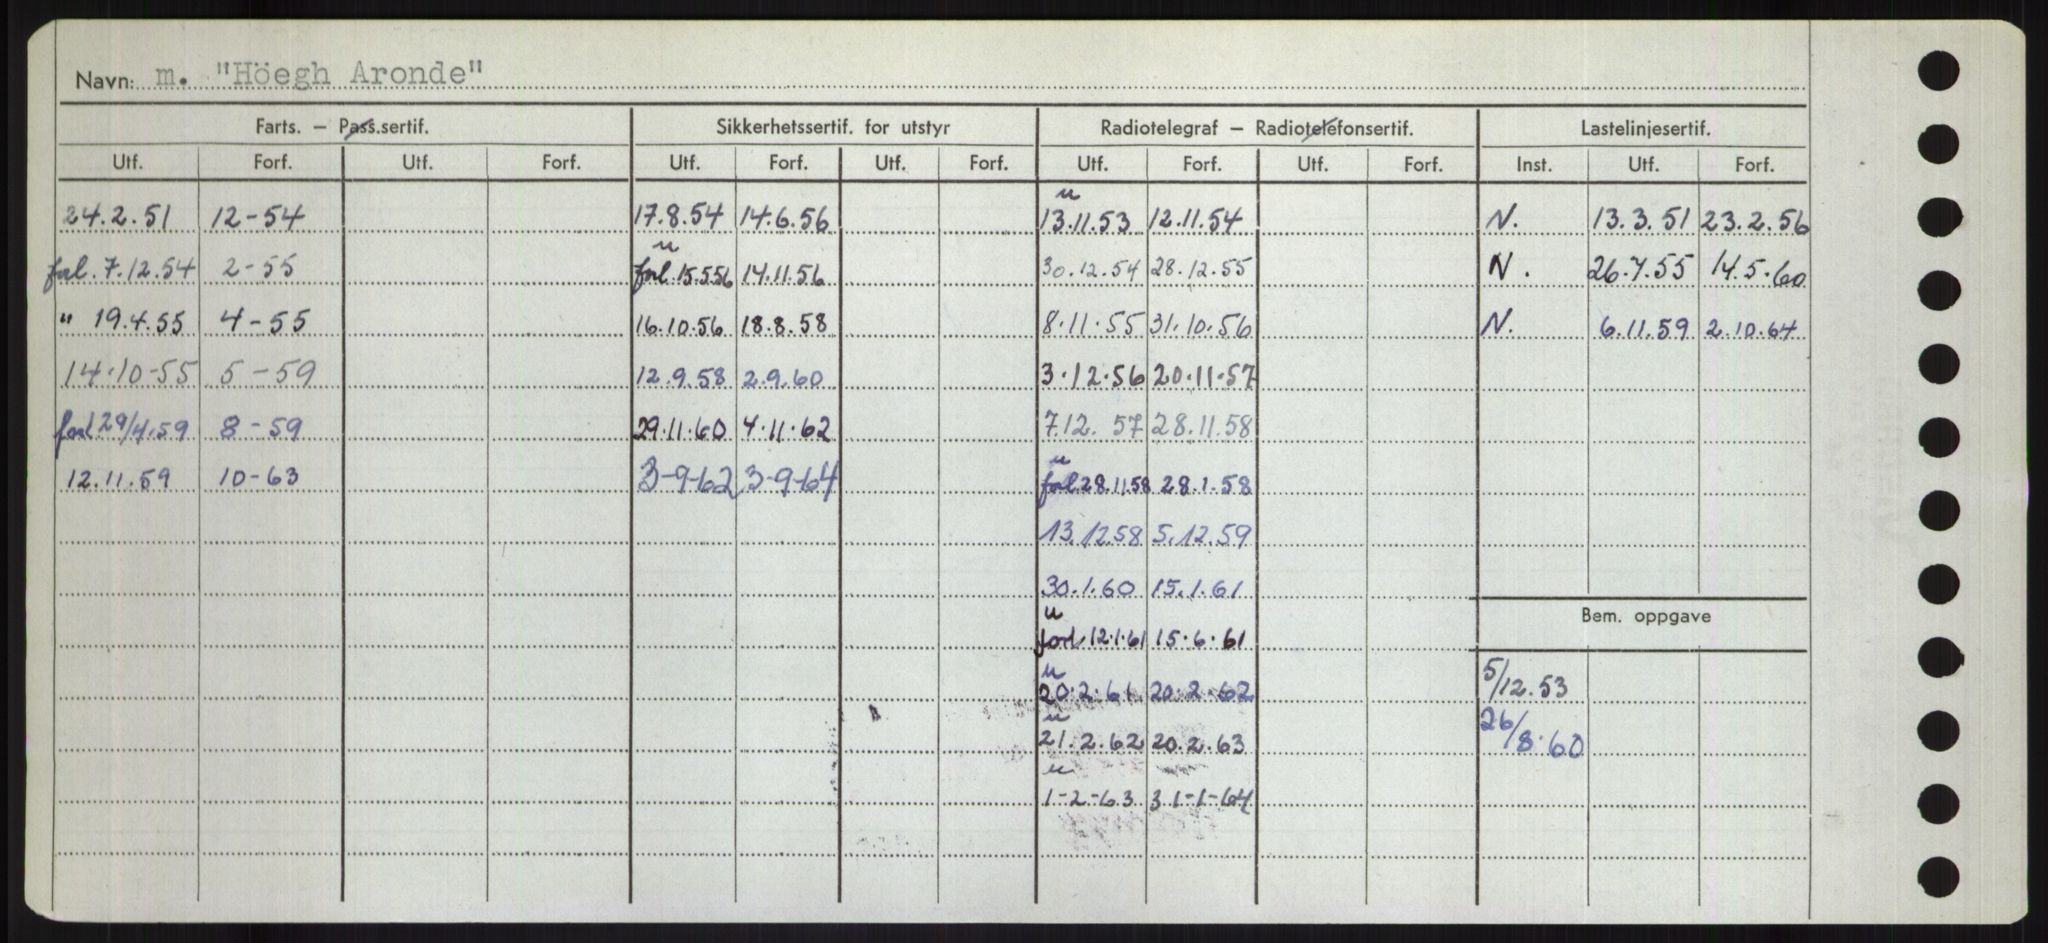 Navn: m. "Höegh Aronde"
Farts. – Pass.sertif. Sikkerhetssertif. for utstyr Radiotelegraf – Radiotelefonsertif. Lastelinjesertif.
Utf. Forf. Utf. Forf. Utf. Forf. Utf. Forf. Utf. Forf. Utf. Forf. Inst. Utf. Forf.
u
24.2.51 12-54 17.8.54 14.6.56 13.11.53 12.11.54 N. 13.3.51 23.2.56
u
forl. 7.12.54 2-55 forl. 15.5.56 14.11.56 30.12.54 28.12.55 N. 26.7.55 14.5.60
" 19.4.55 4-55 16.10.56 18.8.58 8.11.55 31.10.56 N. 6.11.59 2.10.64
14.10-55 5-59 12.9.58 2.9.60 3.12.56 20.11.57
forl 29/4.59 8-59 29.11.60 4.11.62 7.12.57 28.11.58
u
12.11.59 10-63 3-9-62 3-9-64 forl 28.11.58 28.1.58
13.12.58 5.12.59
30.1.60 15.1.61
Bem. oppgave
u
forl 12.1.61 15.6.61
u
20.2.61 20.2.62 5/12.53
u
21.2.62 20.2.63 26/8.60
u
1-2-63 31-1-64